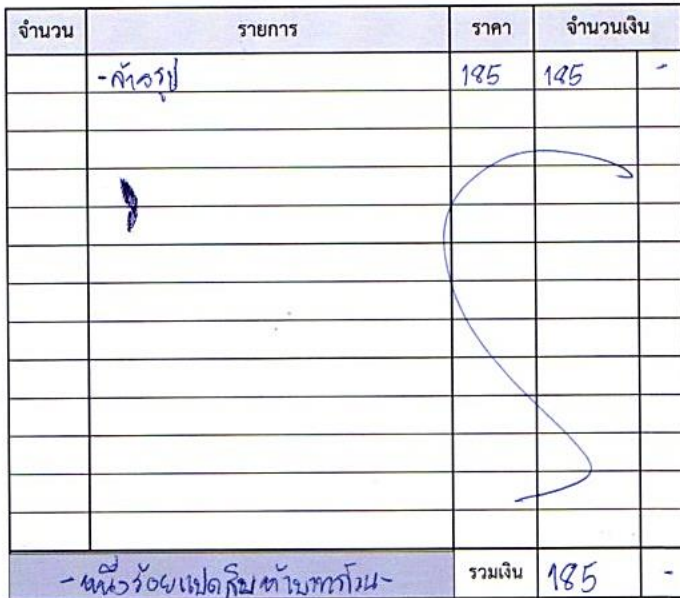 จำนวน รายการ ราคา จำนวนเงิน
-ล้างรูป 185 185 -
-หนึ่งร้อยแปดสิบห้าบาทถ้วน- รวมเงิน 185 -